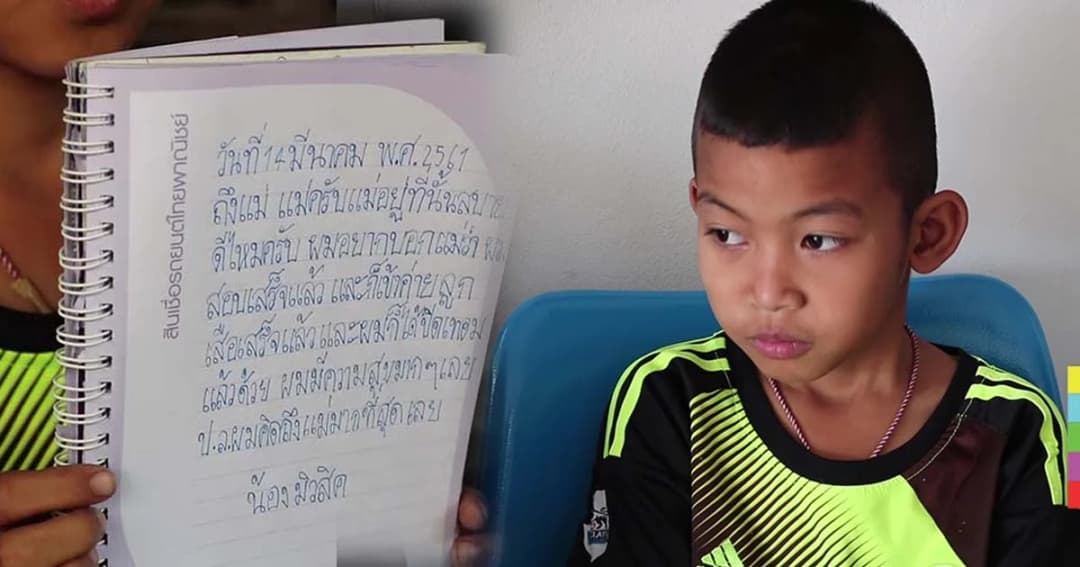 สินเชื่อรถยนต์ไทยพาณิชย์
วันที่ 14 มีนาคม พ.ศ. 2561
ถึงแม่ แม่ครับแม่อยู่ที่นั่นสบาย
ดีไหมครับ ผมอยากบอกแม่ว่า ผม
สอบเสร็จแล้ว และก็เข้าค่ายลูก
เสือเสร็จแล้ว และผมก็ได้ปิดเทอม
แล้วด้วย ผมมีความสุขมากๆเลย
ป.ล.ผมคิดถึงแม่มากที่สุดเลย
น้อง มิวสิค